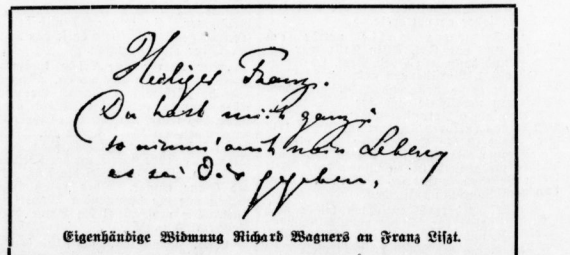 Heiliger Franz.
Du hast mich ganz;
so nimm' auch mein Leben,
es sei Dir gegeben,
Eigenhändige Widmung Richard Wagners an Franz Liszt.